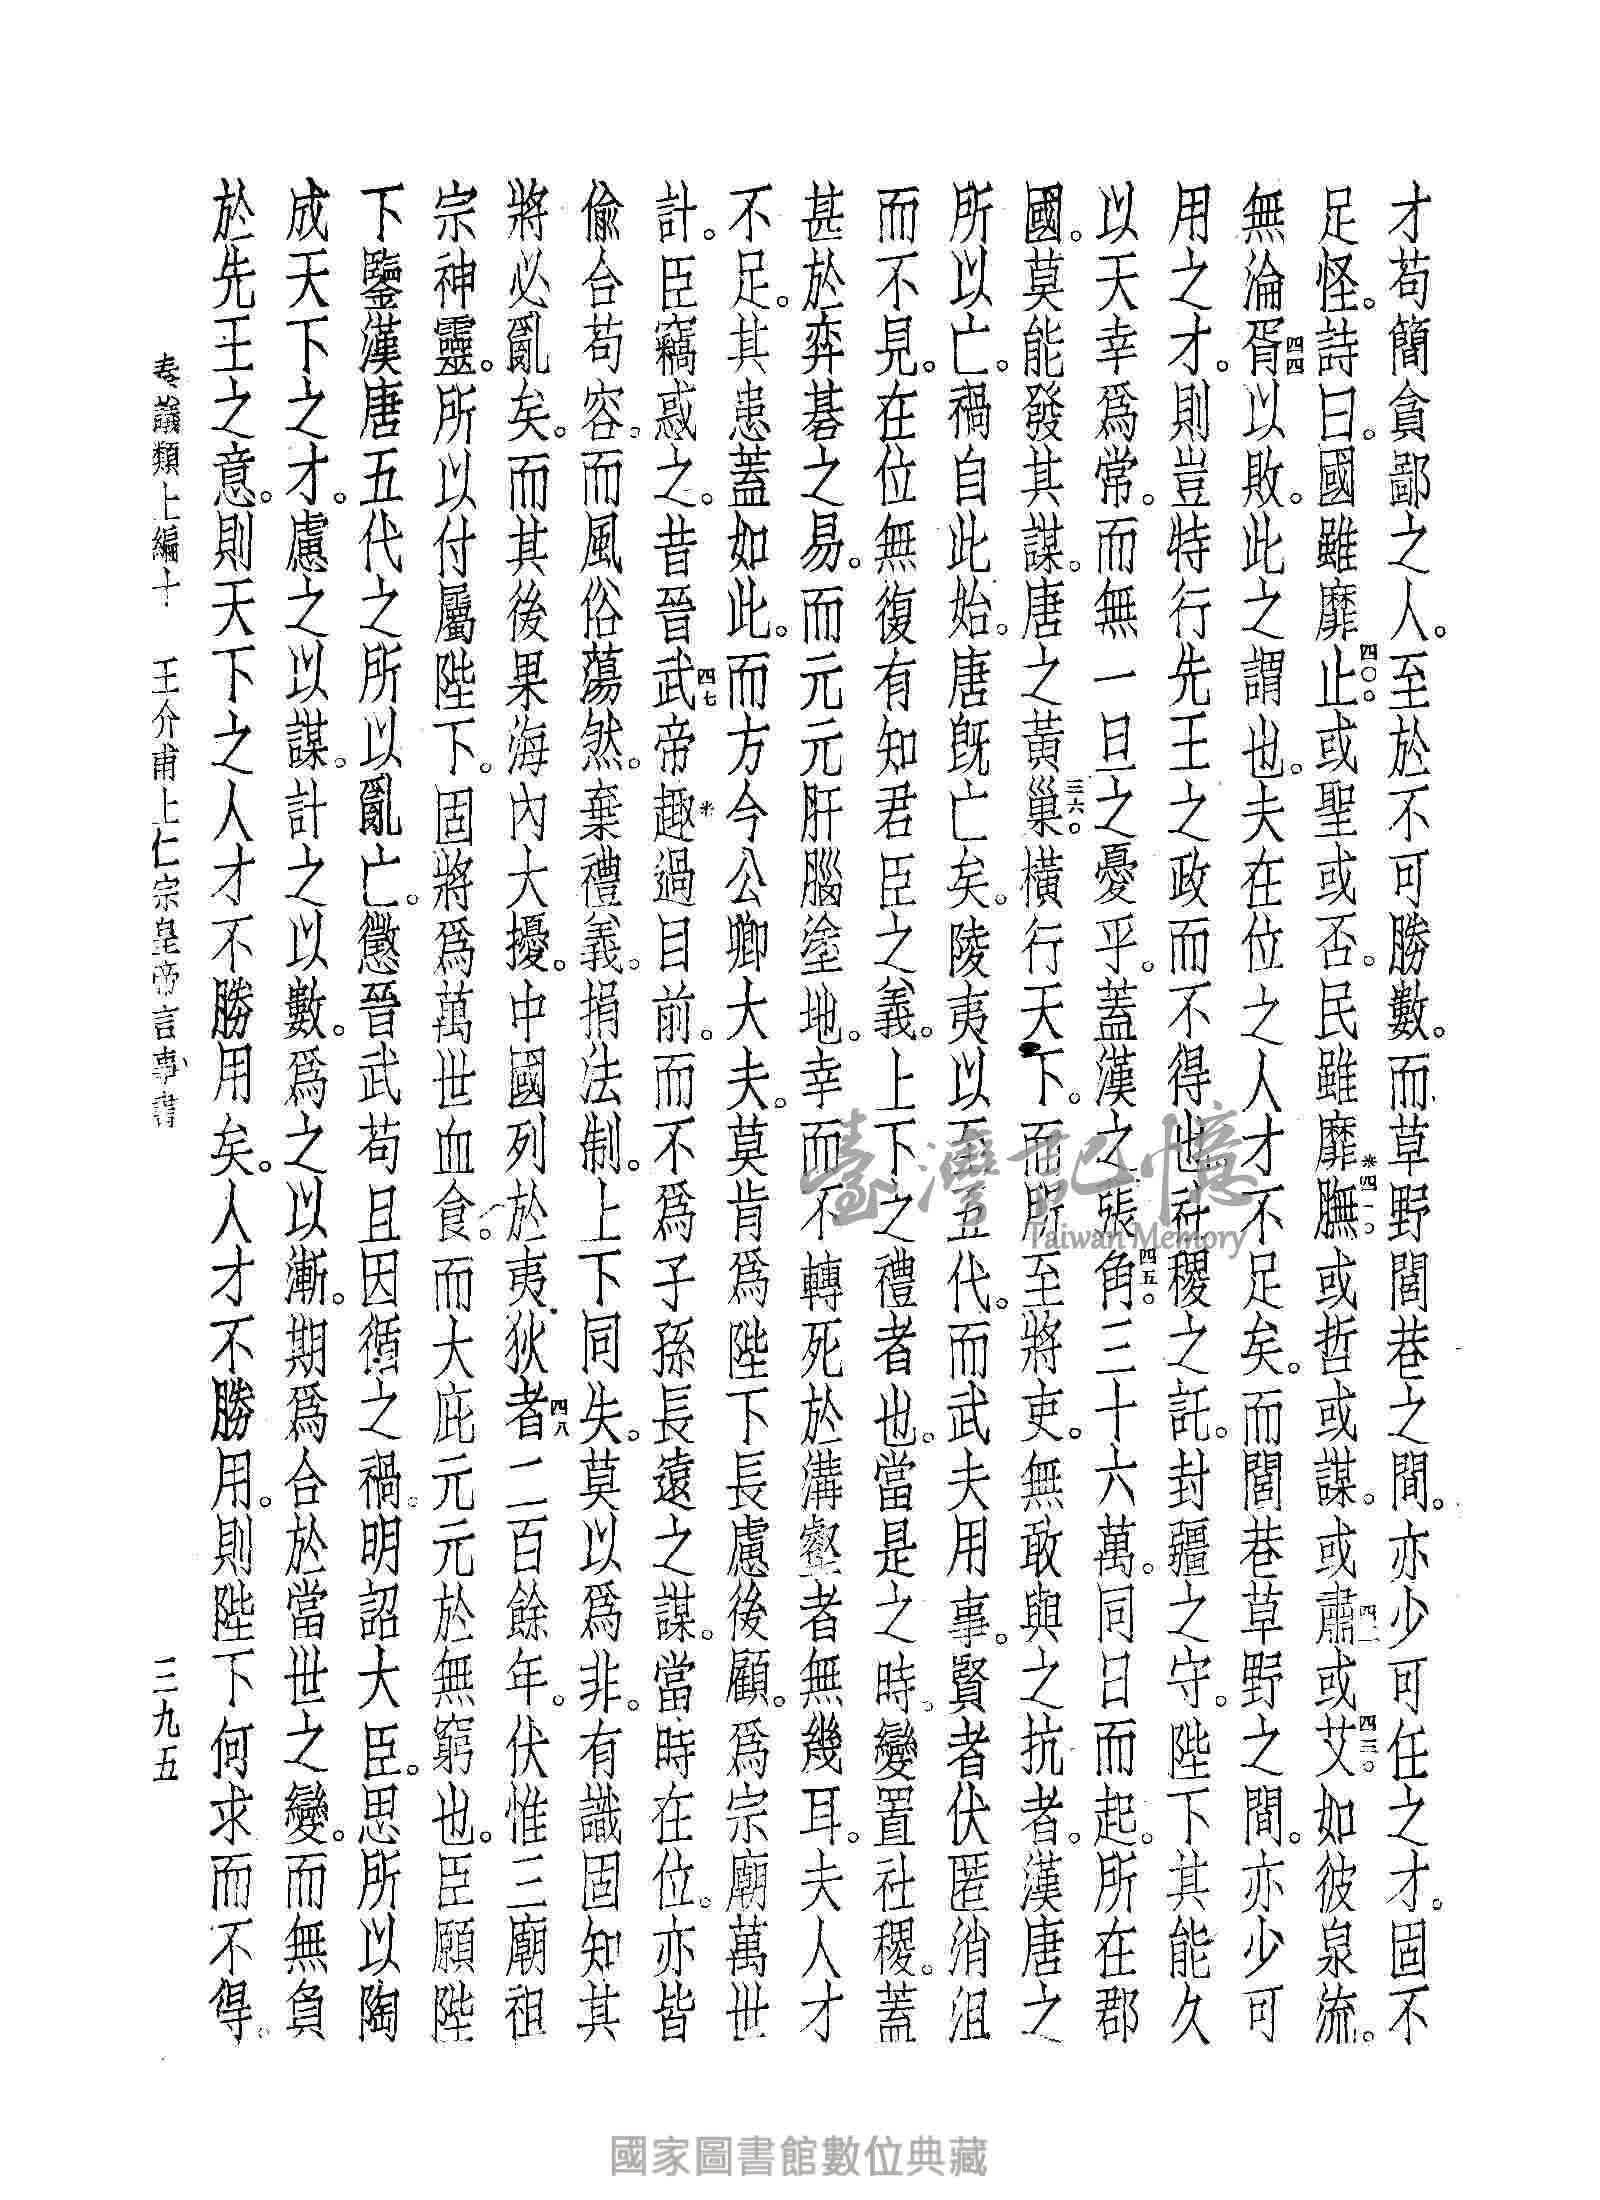 才苟簡貪鄙之人。至於不可勝數。而草野閭巷之間。亦少可任之才。固不
足怪。詩曰。國雖靡止四〇。或聖或否。民雖靡膴＊四一。或哲或謀。或肅四二或艾四三。如彼泉流。
無淪胥四四以敗。此之謂也。夫在位之人才不足矣。而閭巷草野之間。亦少可
用之才。則豈特行先王之政而不得也。社稷之託。封疆之守。陛下其能久
以天幸爲常。而無一旦之憂乎。蓋漢之張角四五。三十六萬。同日而起。所在郡
國。莫能發其謀。唐之黃巢三六。橫行天下。而所至將吏。無敢與之抗者。漢唐之
所以亡。禍自此始。唐旣亡矣。陵夷以至五代。而武夫用事。賢者伏匿消沮
而不見。在位無復有知君臣之義。上下之禮者也。當是之時。變置社稷。蓋
甚於弈碁之易。而元元肝腦塗地。幸而不轉死於溝壑者無幾耳。夫人才
不足。其患蓋如此。而方今公卿大夫。莫肯爲陛下長慮後顧。爲宗廟萬世
計。臣竊惑之。昔晉武四七帝趣＊過目前。而不爲子孫長遠之謀。當時在位。亦皆
偷合苟容。而風俗蕩然。棄禮義。捐法制。上下同失。莫以爲非。有識固知其
將必亂矣。而其後果海內大擾。中國列於夷狄者四八二百餘年。伏惟三廟祖
宗神靈。所以付屬陛下。固將爲萬世血食。而大庇元元於無窮也。臣願陛
下鑒漢唐五代之所以亂亡。懲晉武苟且因循之禍。明詔大臣。思所以陶
成天下之才。慮之以謀。計之以數。爲之以漸。期爲合於當世之變。而無負
於先王之意。則天下之人才不勝用矣。人才不勝用。則陛下何求而不得。
奏議類上編十　王介甫上仁宗皇帝言事書　三九五
臺灣記憶
Taiwan Memory
國家圖書館數位典藏